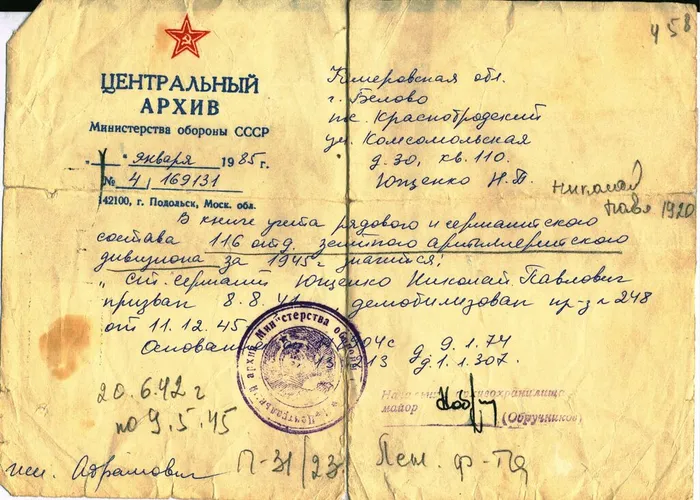 458
ЦЕНТРАЛЬНЫЙ
АРХИВ
Министерства обороны СССР
января 1985 г.
№ 4/169131
142100, г. Подольск, Моск. обл.
Кемеровская обл.
г. Белово
пос. Краснобродский
ул. Комсомольская
д. 30, кв. 110.
Ющенко Н.П.
Николай
Павл 1920
В книге учета рядового и сержантского
состава 116 отд. зенитного артиллерийского
дивизиона за 1945 г. значится:
„ст. сержант Ющенко Николай Павлович
призван 8.8.41 демобилизован пр-з № 248
от 11.12.45
904с д. 1.74
13 д. д. 1.307.
20.6.42 г
по 9.5.45
Начальник архивохранилища
майор (Обручников)
исп. Абрамович
П-31/23